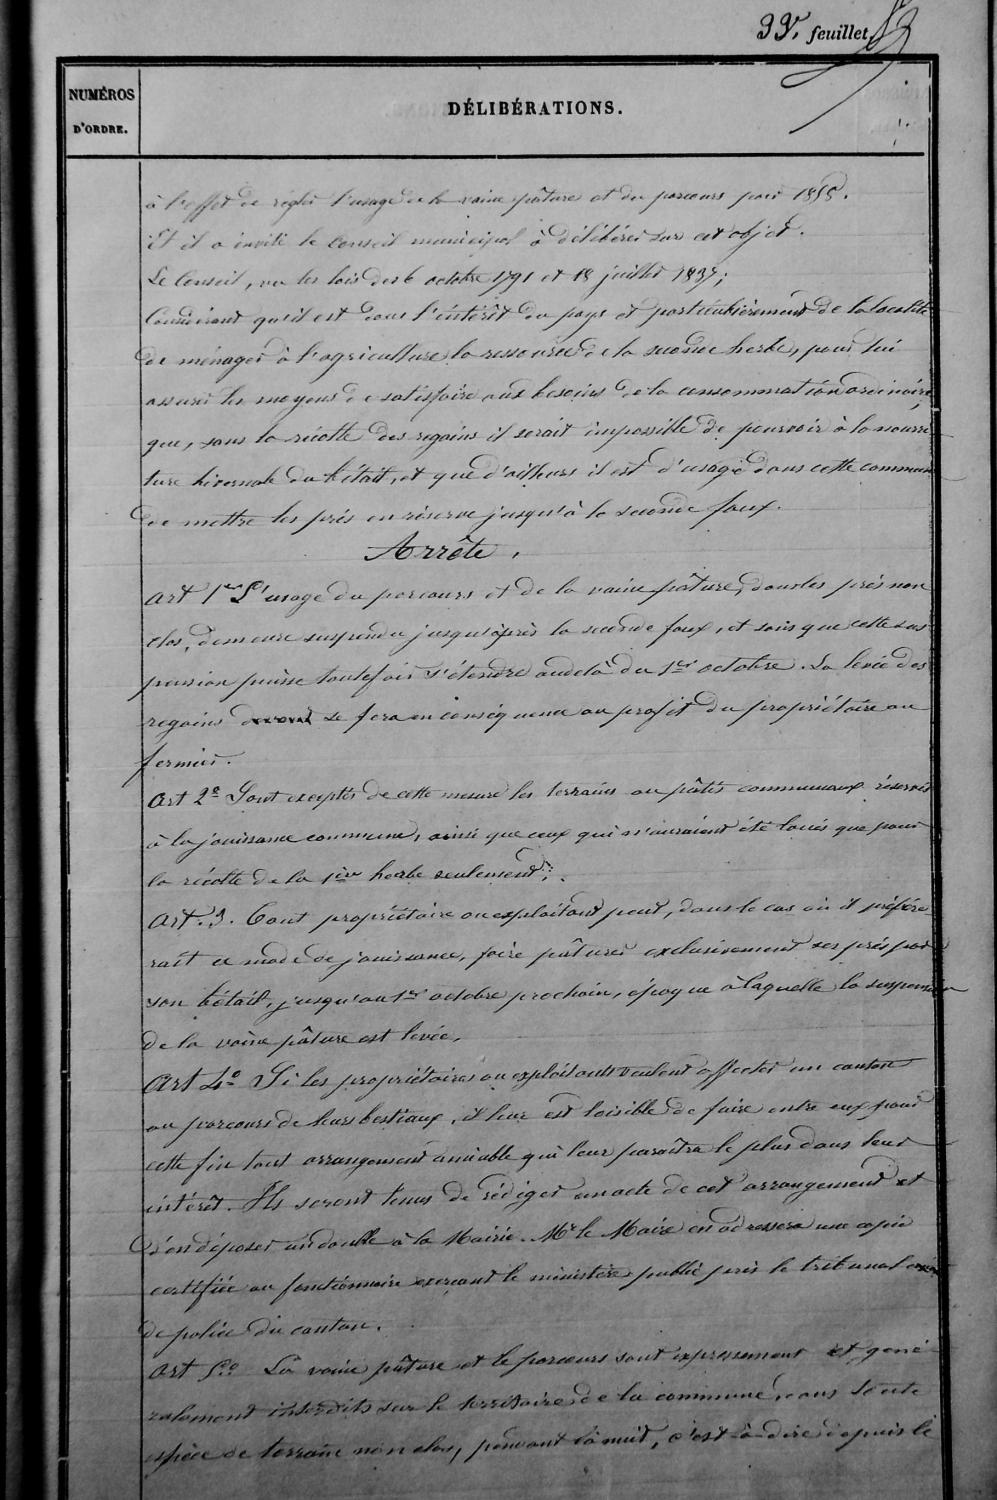 33e. feuillet.
NUMÉROS
D'ORDRE.
DÉLIBÉRATIONS.
à l'effet de régler l'usage de la vaine pâture et du parcours pour 1858.
Et il a invité le Conseil municipal à délibérer sur cet objet.
Le Conseil, vu les lois des 6 octobre 1791 et 18 juillet 1837;
Considérant qu'il est dans l'intérêt du pays et particulièrement de la localité
de ménager à l'agriculture la ressource de la seconde herbe, pour lui
assurer les moyens de satisfaire aux besoins de la consommation ordinaire,
que, sans la récolte des regains il serait impossible de pourvoir à la nourri
ture hivernale du bétail, et que d'ailleurs il est d'usage dans cette commune
de mettre les prés en réserve jusqu'à la seconde faux.
Arrête,
Art 1er L'usage du parcours et de la vaine pâture, dans les prés non
clos, demeure suspendu jusqu'après la seconde faux, et sans que cette sus
pension puisse toutefois s'étendre au delà du 1er octobre. La levée des
regains se fera en conséquence au profit du propriétaire ou
fermier.
Art 2e Sont exceptés de cette mesure les terrains ou pâtis communaux réservés
à la jouissance commune, ainsi que ceux qui n'auraient été loués que pour
la récolte de la 1ère herbe seulement;
Art. 3. Tout propriétaire ou exploitant peut, dans le cas où il préfére
rait ce mode de jouissance, faire pâturer exclusivement ses prés par
son bétail, jusqu'au 1er octobre prochain, époque à laquelle la suspension
de la vaine pâture est levée.
Art 4e Si les propriétaires ou exploitants veulent affecter un canton
au parcours de leurs bestiaux, il leur est loisible de faire entre eux pour
cette fin tout arrangement amiable qui leur paraîtra le plus dans leur
intérêt. Ils seront tenus de rédiger un acte de cet arrangement et
d'en déposer un double à la Mairie. Mr le Maire en adressera une copie
certifiée au fonctionnaire exerçant le ministère public près le tribunal
de police du canton.
Art 5e La vaine pâture et le parcours sont expressément et géné
ralement interdits sur le territoire de la commune, dans toute
espèce de terrain non clos, pendant la nuit, c'est-à-dire depuis le